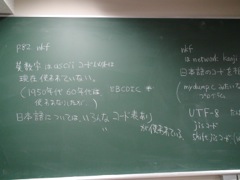 P82 nkf
英数字はASCIIコード以外は
現在使われていない。
(1950年代 60年代は EBCDIC *
使われていたが)
日本語については、いろんなコード表あり
が使われてる
nkf
is network kanji
日本語のコードを
mydump
UTF-8
jisコード
shift jisコード